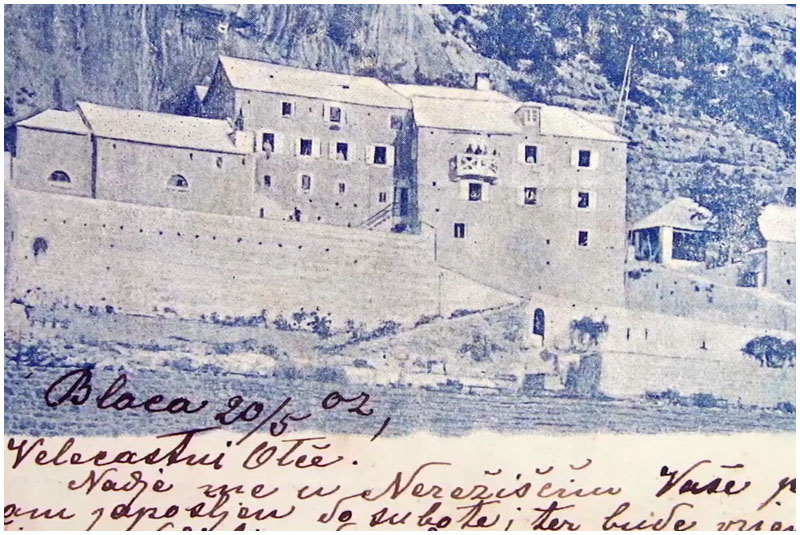 Blaca 20/5 02,
Velecastni Otče.
Nadje me u Nerežišćim Vaše p
am zaposljen do subote; ter bude vrien